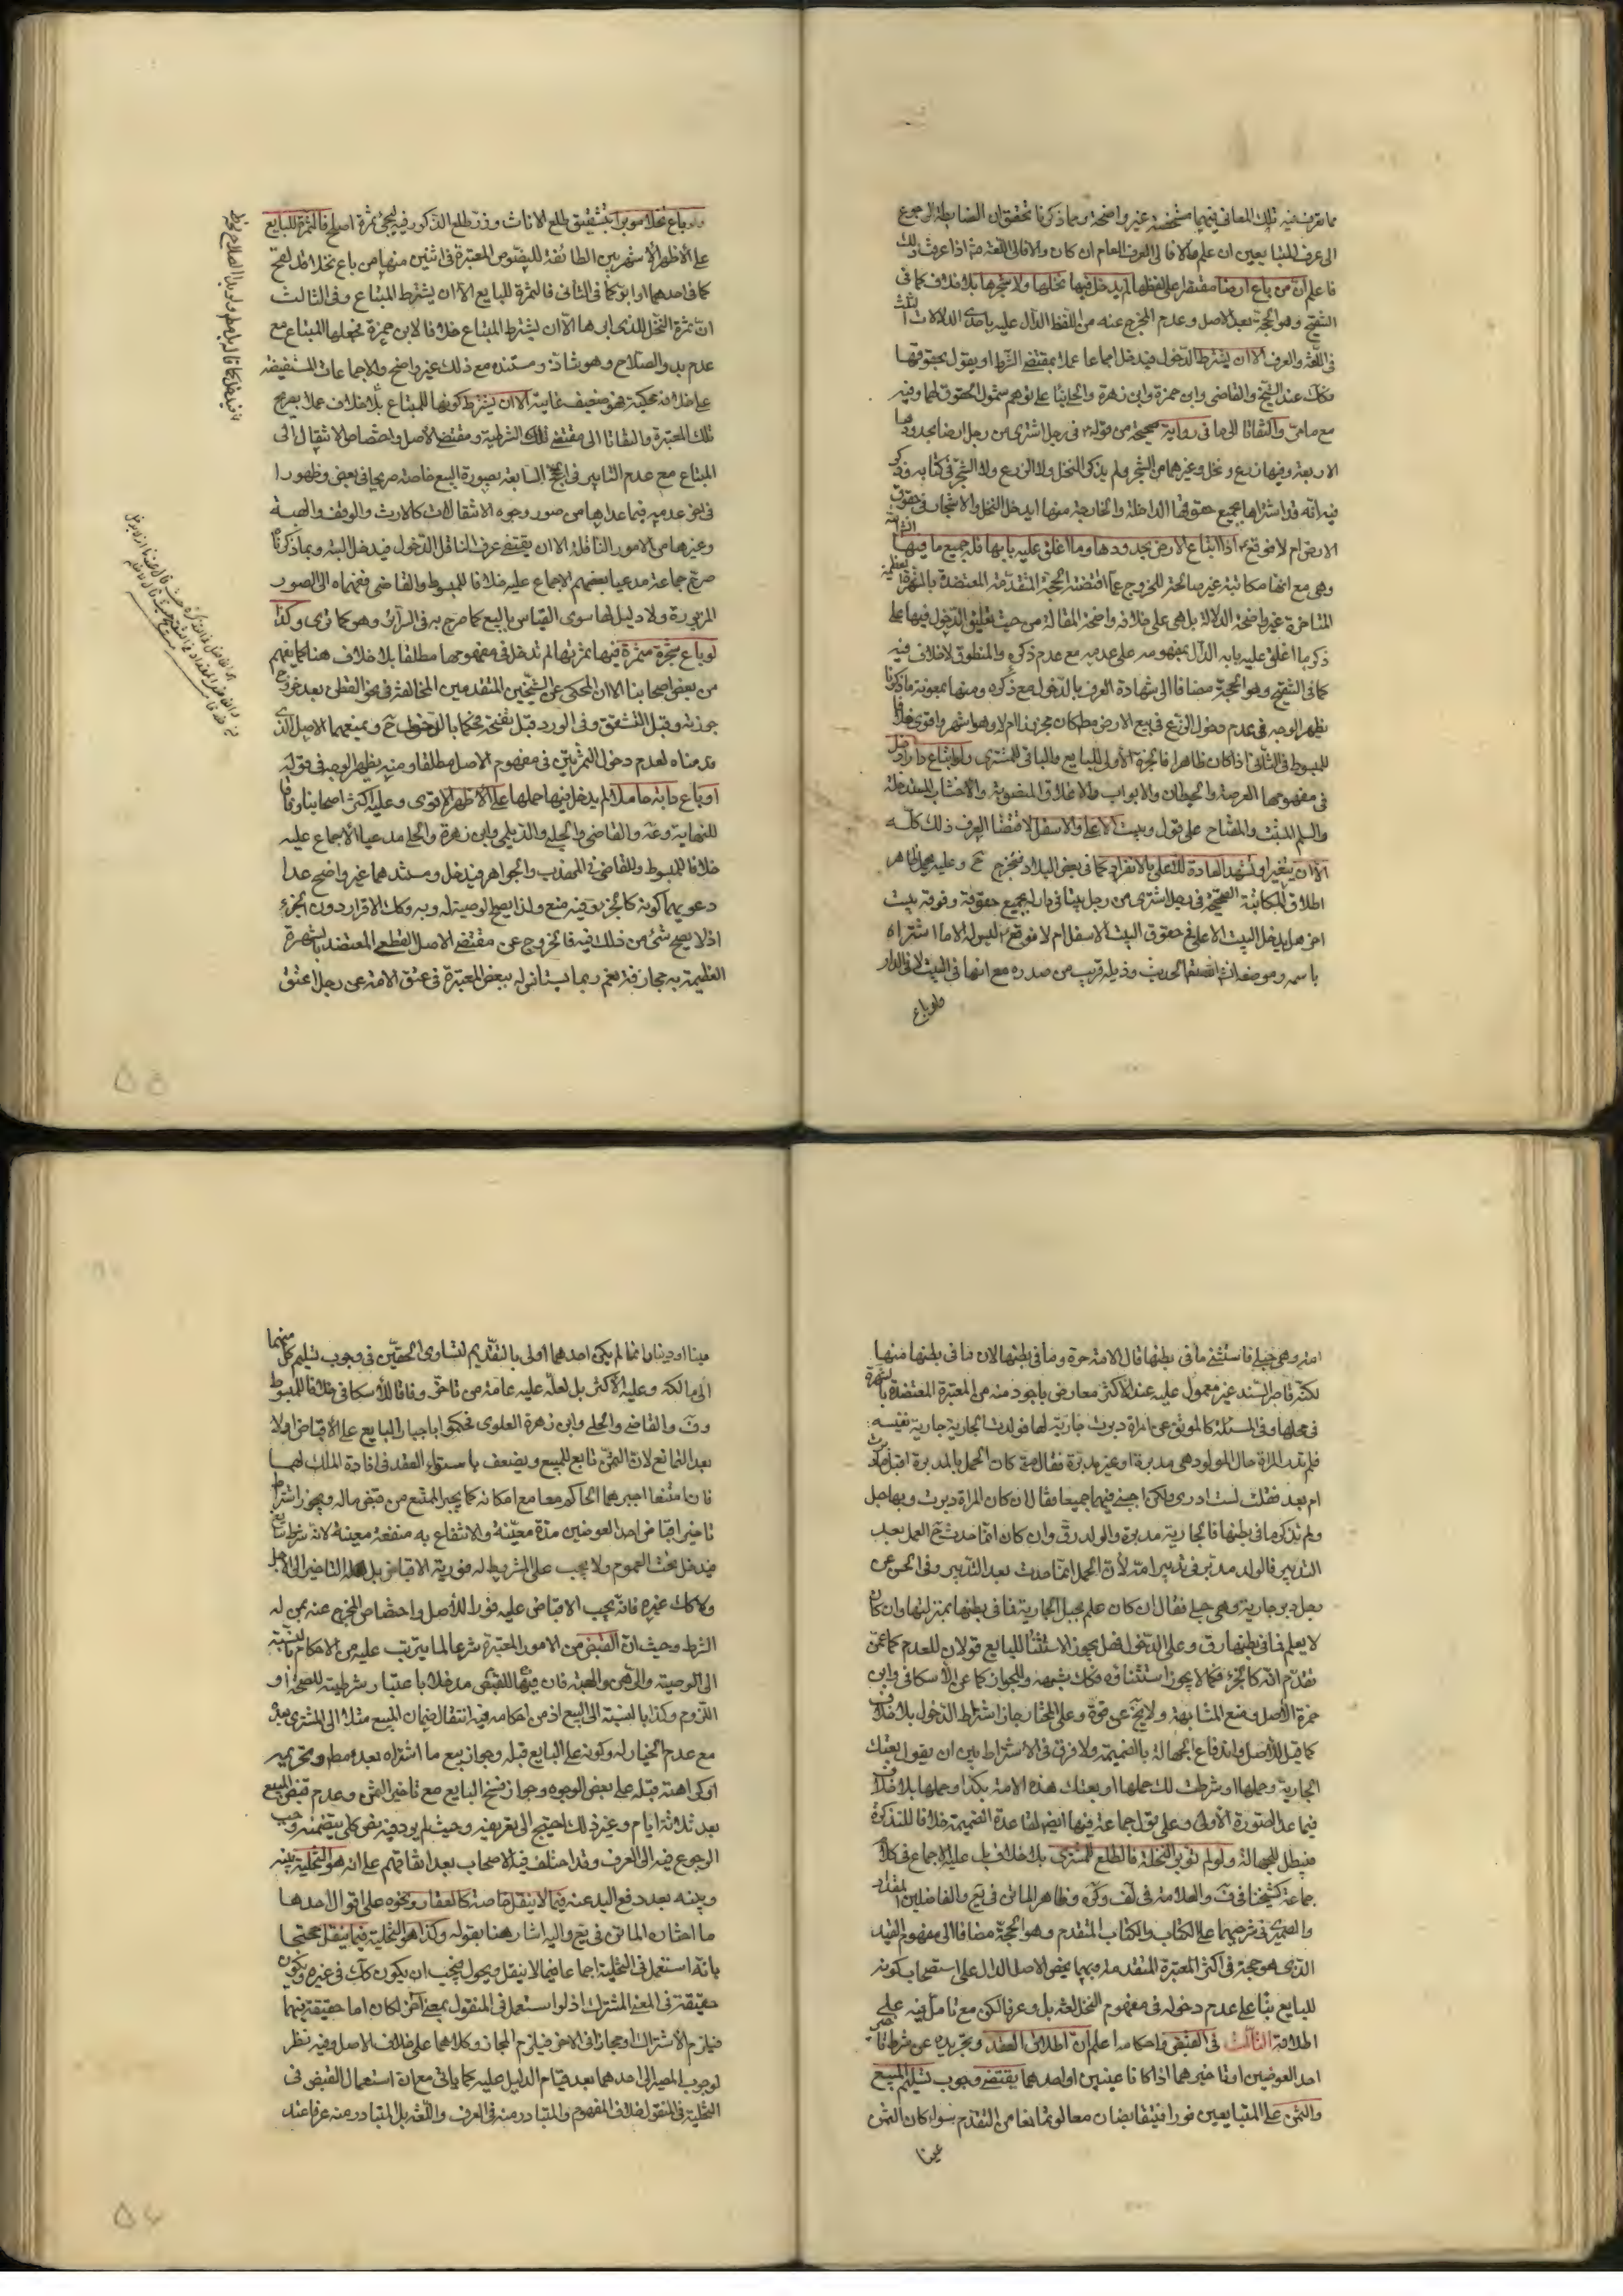 مما يعرف فيه تلك المعاني فيهما متخصصه غير واضحة وبما ذكرنا تحقق ان الضابط الرجوع
الى عرف المتبايعين ان علم والا فالى العرف العام ان كان والا فالى اللغة ثم اذا عرفت ذلك
فاعلم ان من باع ارضا مقتصرا على لفظها لم يدخل فيها نخلها ولا شجرها بلا خلاف كما في
التنقيح وهو الحجة بعد الاصل وعدم المخرج عنه من اللفظ الدال عليه باحدى الدلالات الثلث
في اللغة والعرف الا ان يشترط الدخول فيدخل اجماعا عملا بمقتضى الشرط او يقول بحقوقها
فكك عند الشيخ والقاضي وابن حمزة وابن زهرة والحلي بناء على توهم شمول الحقوق لهما وفيه
مع ما مر والتفاتا الى ما في رواية صحيحة من قوله في رجل اشترى من رجل ارضا بحدودها
الاربعة وفيها زرع ونخل وغيرهما من الشجر ولم يذكر النخل ولا الزرع ولا الشجر في كتابه وذكر
فيه انه قد اشتراها بجميع حقوقها الداخلة والخارجة منها ايدخل النخل والاشجار في حقوق
الارض ام لا فوقع ع اذا ابتاع الارض بحدودها وما اغلق عليه بابها فله جميع ما فيها
وهي مع انها مكاتبة غير صالحة للخروج عما اقتضته الحجة المتقدمة المعتضدة بالشهرة العظيمة
المتاخرة غير واضحة الدلالة بل هي على خلافه واضحة المقالة من حيث تعليق الدخول فيها على
ذكر ما اغلق عليه بابه الدال بمفهومه على عدمه مع عدم ذكره والمنطوق لا خلاف فيه
كما في التنقيح وهو الحجة مضافا الى شهادة العرف بالدخول مع ذكره ومنها بمعونة ما ذكرنا
يظهر الوجه في عدم دخول الزرع في بيع الارض مط كان مجزوزا ام لا وهو اشهر واقوى خلافا
للمبسوط في الثاني اذا كان ظاهرا فالجزة الاولى للبايع والباقي للمشترى ولو ابتاع دارا دخل
في مفهومها العرصة والحيطان والابواب والاغلاق المنصوبة والاخشاب المستدخلة
والسلم المثبت والمفتاح على قول وبيت الاعلى والاسفل لاقتضاء العرف ذلك كله
الا ان يتغير او تشهد العادة للاعلى بالانفراد كما في بعض البلاد فيخرج ح وعليه يحمل ظاهر
اطلاق المكاتبة الصحيحة في رجل اشترى من رجل بيتا في دار بجميع حقوقه وفوقه بيت
اخر هل يدخل البيت الاعلى في حقوق البيت الاسفل ام لا فوقع ع ليس له الا ما اشتراه
باسمه وموضعه انشاء الله تعالى الحديث وذيله قريب من صدره مع انها في البيت لا في الدار
ولو باع
ولو باع نخلا مؤبرا بتشقيق طلع الاناث وذر طلع الذكور فيه ليجئ ثمرة اصلح فالثمرة للبايع
على الاظهر الاشهر بين الطائفة للنصوص المعتبرة في اثنين منها من باع نخلا قد لقح
كما في احدهما او ابر كما في الثاني فالثمرة للبايع الا ان يشترط المبتاع وفي الثالث
ان ثمرة النخل للذي ابرها الا ان يشترط المبتاع خلافا لابن حمزة فجعلها للمبتاع مع
عدم بدو الصلاح وهو شاذ ومستنده مع ذلك غير واضح والاجماعات المستفيضة
على خلافه محكية فهو ضعيف غايته الا ان يشترط كونها للمبتاع بلا خلاف عملا بصريح
تلك المعتبرة والتفاتا الى مقتضى تلك الشرطية ومقتضى الاصل واختصاص الانتقال الى
المبتاع مع عدم التابير في الحجج السابقة بصورة البيع خاصة صريحا في بعض وظهورا
في اخر عدمه فيما عداها من صور وجوه الانتقالات كالارث والوقف والهبة
وغيرها من الامور الناقلة الا ان يقتضي عرف الناقل الدخول فيدخل البتة وبما ذكرنا
صرح جماعة مدعيا بعضهم الاجماع عليه خلافا للمبسوط والقاضي فعمماه الى الصور
المزبورة ولا دليل لهما سوى القياس بالبيع كما صرح به في السرائر وهو كما ترى وكذا
لو باع شجرة مثمرة فيها ثمرتها لم تدخل في مفهومها مطلقا بلا خلاف هنا كما يفهم
من بعض اصحابنا الا ان المحكي عن الشيخين المتقدمين المخالفة في نحو القطن بعد خروج
جوزته وقبل التشقق وفي الورد قبل تفتحه فحكما بالدخول ح ويمنعهما الاصل الذي
قدمناه لعدم دخول الثمرتين في مفهوم الاصل مطلقا ومنه يظهر الوجه في قوله
او باع دابة حاملا لم يدخل فيها حملها على الاظهر الاقوى وعليه اكثر اصحابنا وفاقا
للنهاية وعة والقاضي والحلبي والديلمي وابن زهرة والحلي مدعيا الاجماع عليه
خلافا للمبسوط وللقاضي في المهذب والجواهر فيدخل ومستندهما غير واضح عدا
دعويهما كونه كالجزء وفيه منع ولذا يصح الوصية له وبه وكك الاقرار دون الجزء
اذ لا يصح شئ من ذلك فيه فالخروج عن مقتضى الاصل القطعي المعتضد بالشهرة
العظيمة به مجازفة نعم ربما يستانس له ببعض المعتبرة في عتق الامة عن رجل اعتق
امته وهي حبلى فاستثنى ما في بطنها قال الامة حرة وما في بطنها لان ما في بطنها منها
لكنه قاصر السند غير معمول عليه عند الاكثر معارض باجود منه من المعتبرة المعتضدة بالشهرة
في محلها وفي المسئلة كالموثق عن امراة دبرت جارية لها فولدت الجارية جارية نفيسة
فلم تدر المراة حال المولود هي مدبرة او غير مدبرة فقال متى كان الحمل بالمدبرة اقبل ما دبرت
ام بعد فقلت لست ادري ولكن اجبني فيهما جميعا فقال ان كان المراة دبرت وبها حبل
ولم تذكر ما في بطنها فالجارية مدبرة والولد رق وان كان انما حدث الحمل بعد
التدبير فالولد مدبر في تدبير امه لان الحمل انما حدث بعد التدبير وفي الحسن عن
رجل دبر جارية وهي حبلى فقال ان كان علم بحبل الجارية فما في بطنها بمنزلتها وان كان
لا يعلم فما في بطنها رق وعلى الدخول فهل يجوز الاستثناء للبايع قولان للعدم كما عمن
تقدم انه كالجزء فكما لا يجوز استثنائه فكك شبهه وللجواز كما عن الاسكافي وابن
حمزة الاصل ومنع المشابهة ولا يخ عن قوة وعلى المختار جاز اشتراط الدخول بلا خلاف
كما قيل للاصل واندفاع الجهالة بالضميمة ولا فرق في الاشتراط بين ان يقول بعتك
الجارية وحملها او شرطت لك حملها او بعتك هذه الامة بكذا وحملها بلا خلاف
فيما عدا الصورة الاولى وعلى قول جماعة فيها ايضا لقاعدة الضميمة خلافا للتذكرة
فيبطل للجهالة ولو لم تؤبر النخلة فالطلع للمشترى بلا خلاف بل عليه الاجماع في كلام
جماعة كشيخنا في ف والعلامة في لف وكره وظاهر الماتن في يع والفاضلين المقداد
والصيمري في شرحيهما على الكتاب والكتاب المتقدم وهو الحجة مضافا الى مفهوم القيد
الذي هو حجة في اكثر المعتبرة المتقدمة وبهما يخص الاصل الدال على استصحاب كونه
للبايع بناء على عدم دخوله في مفهوم النخل لغة بل وعرفا لكن مع تامل فيه على
اطلاقه الثالث في القبض واحكامه اعلم ان اطلاق العقد وتجريده عن شرط تاخير
احد العوضين او تاخيرهما اذا كانا عينين او احدهما يقتضي وجوب تسليم المبيع
والثمن على المتبايعين فورا فيتقابضان معا لو تمانعا من التقدم سواء كان الثمن
عينا
عينا او دينا وانما لم يكن احدهما اولى بالتقديم لتساوى الحقين في وجوب تسليم كل منهما
الى مالكه وعليه الاكثر بل لعله عليه عامة من تاخر وفاقا للاسكافي خلافا للمبسوط
وف والقاضي والحلي وابن زهرة العلوى فحكموا باجبار البايع على الاقباض اولا
بعد التمانع لان الثمن تابع للمبيع ويضعف باستواء العقد في افادة الملك لهما
فان امتنعا اجبرهما الحاكم معا مع امكانه كما يجبر الممتنع من قبض ماله ويجوز اشتراط
تاخير اقباض احد العوضين مدة معينة والانتفاع به منفعة معينة لانه شرط سائغ
فيدخل تحت العموم ولا يجب على المشروط له فورية الاقباض بل له التاخير الى الاجل
ولا كك غيره فانه يجب الاقباض عليه فورا للاصل واختصاص المخرج عنه بمن له
الشرط وحيث ان القبض من الامور المعتبرة شرعا لما يترتب عليه من الاحكام بالنسبة
الى الوصية والرهن والهبة فان فيها للقبض مدخلا باعتبار شرطيته للصحة او
اللزوم وكذا بالنسبة الى البيع اذ من احكامه فيه انتقال ضمان المبيع مثلا الى المشترى بعده
مع عدم الخيار له وكونه على البايع قبله وجواز بيع ما اشتراه بعده مط وتحريمه
او كراهته قبله على بعض الوجوه وجواز فسخ البايع مع تاخير الثمن وعدم قبض المبيع
بعد ثلاثة ايام وغير ذلك احتيج الى تعريفه وحيث لم يرد فيه نص كلي يتضمنه وجب
الرجوع فيه الى العرف وقد اختلف فيه الاصحاب بعد اتفاقهم على انه هو التخلية بينه
وبينه بعد رفع اليد عنه فيما لا ينقل خاصة كالعقار ونحوه على اقوال احدها
ما اختاره الماتن في يع واليه اشار هنا بقوله وكذا هو التخلية فيما ينقل محتجا
بانه استعمل في التخلية اجماعا فيما لا ينقل ويحول فيجب ان يكون كك في غيره ويكون
حقيقة في المعنى المشترك اذ لو استعمل في المنقول بمعنى آخر لكان اما حقيقة فيهما
فيلزم الاشتراك او مجازا في الاخر فيلزم المجاز وكلاهما على خلاف الاصل وفيه نظر
لوجوب المصير الى احدهما بعد قيام الدليل عليه كما ياتي مع ان استعمال القبض في
التخلية في المنقول خلاف المفهوم والمتبادر منه في العرف واللغة بل المتبادر منه عرفا عند